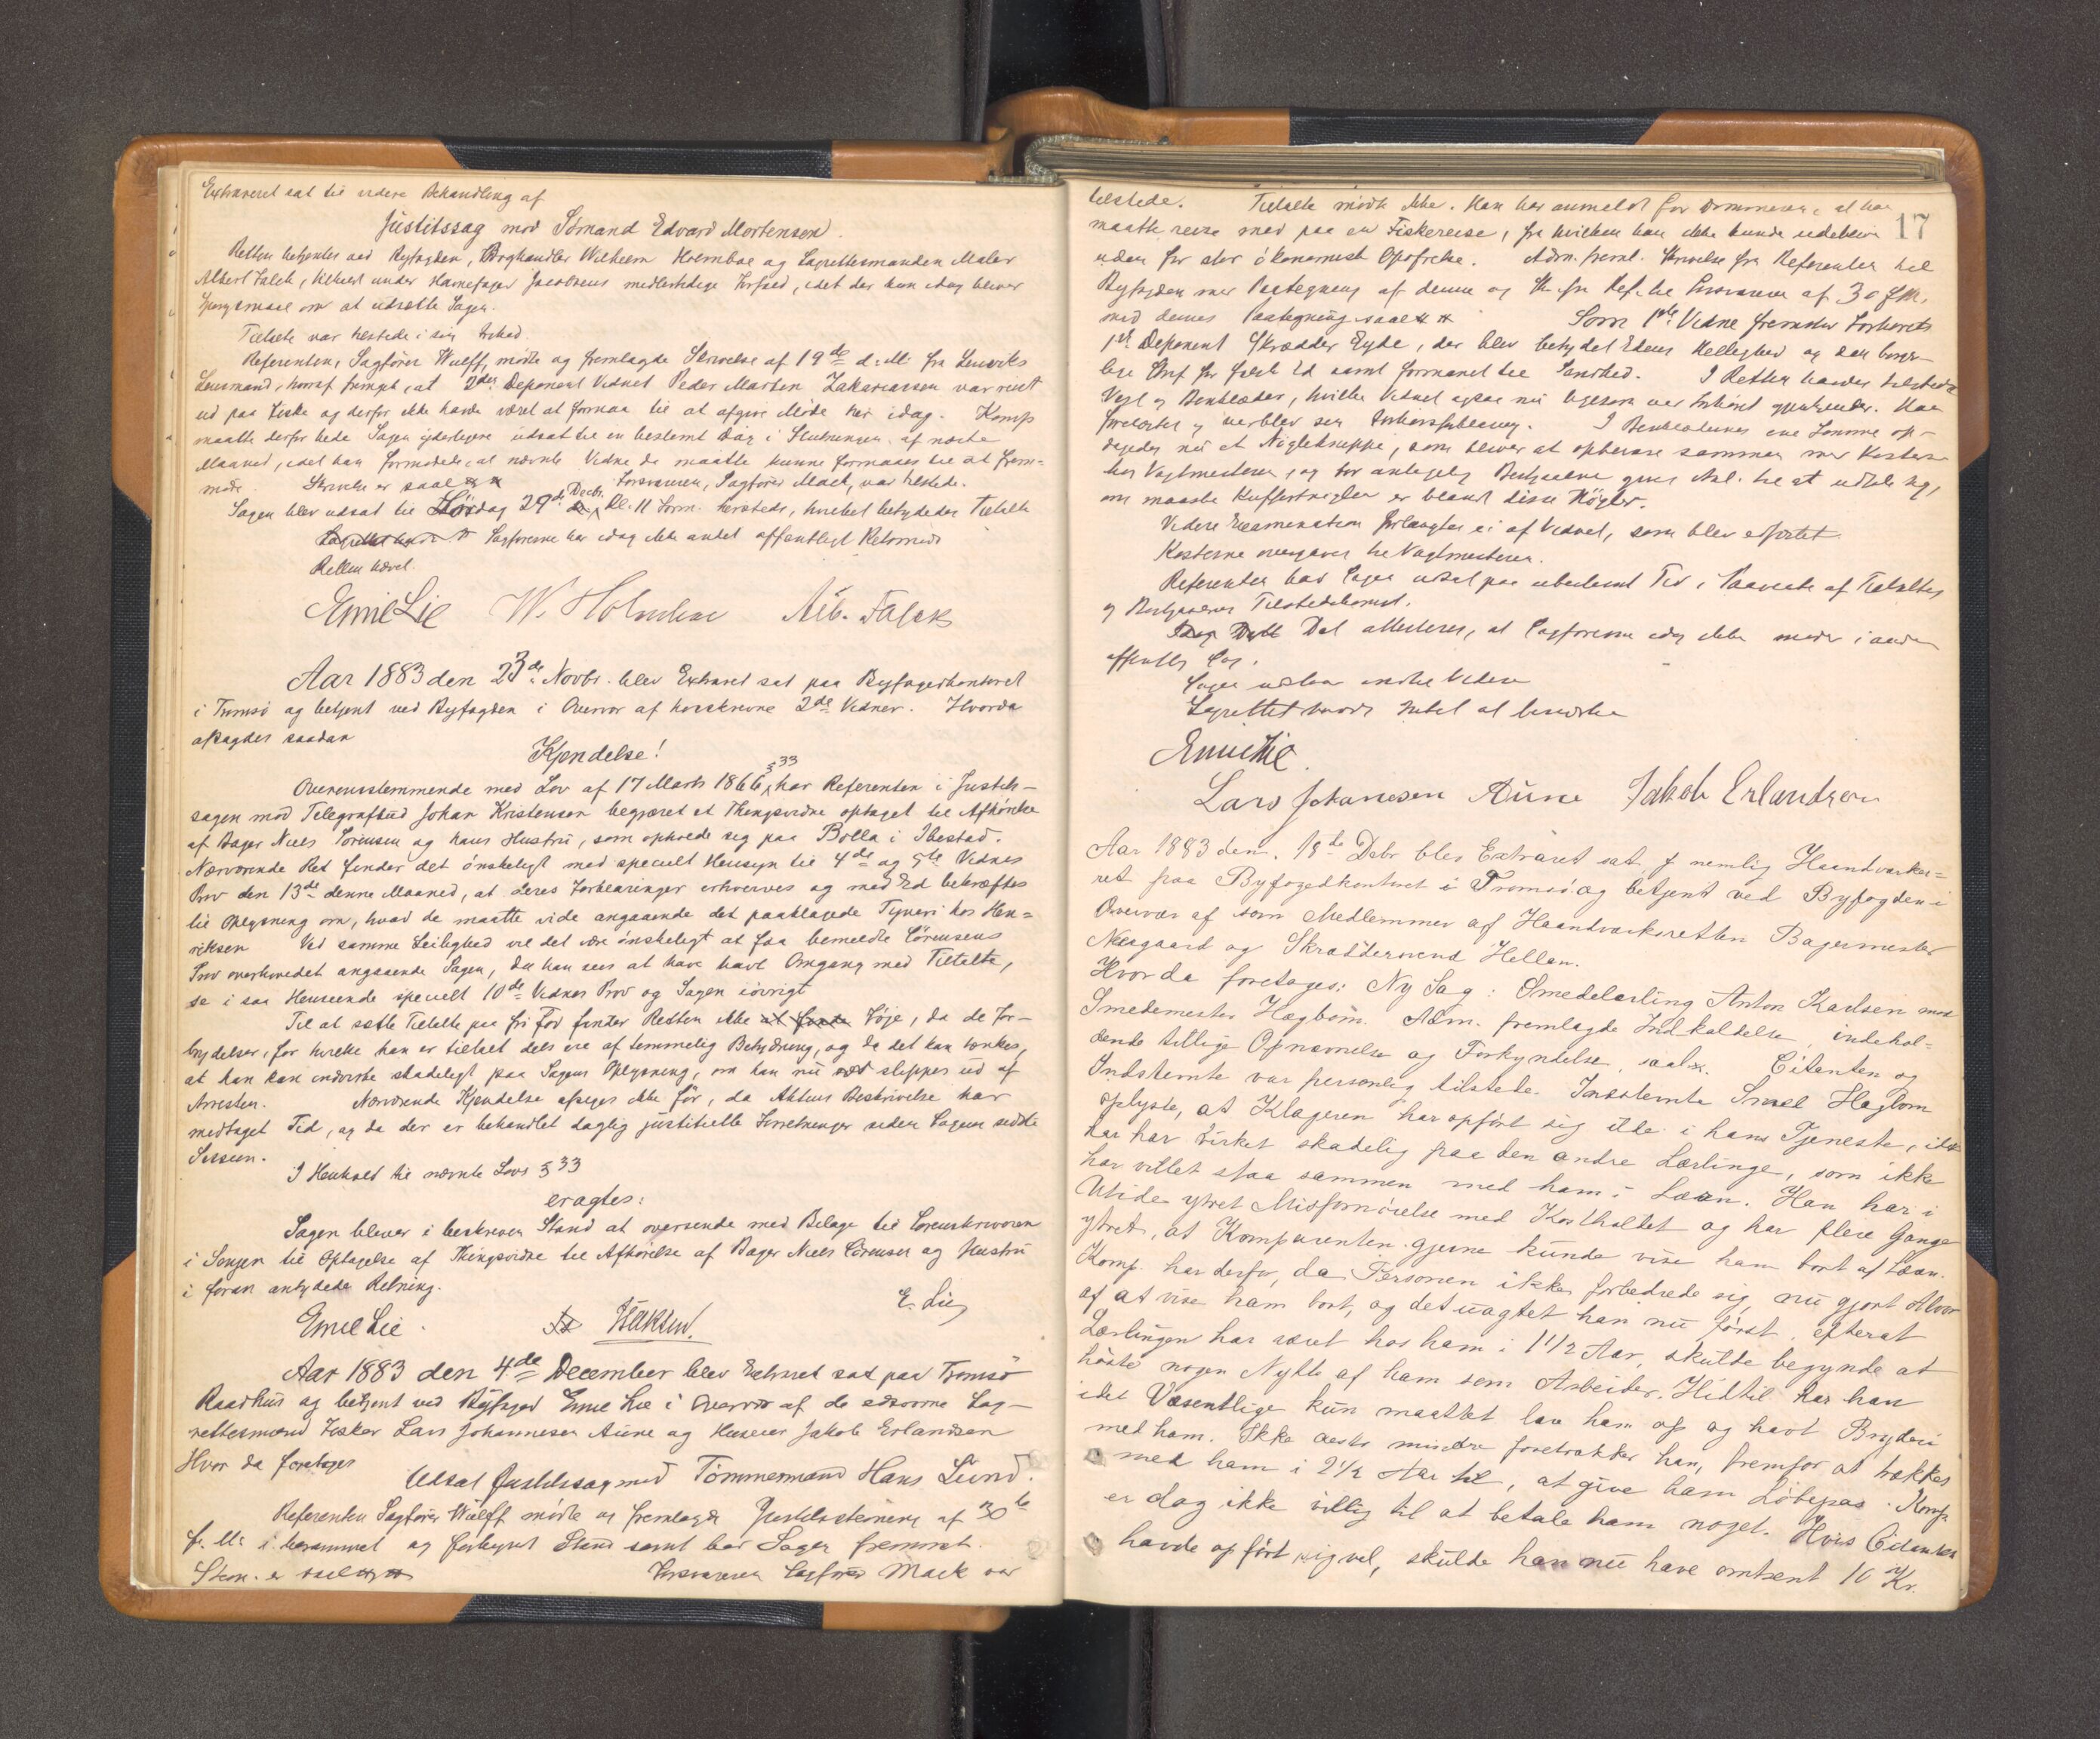 Extraret sat til videre Behandling af
Justitssag mod Sömand Edvard Mortensen.
Retten betjentes ved Byfogden, Boghandler Wilhelm Holmboe og Lagrettesmanden Maler
Albert Falck, hvilket under Havnefoged Jacobsens midlertidige Forfald, idet der kun idag bliver
Spørgsmaal om at udsætte Sagen.
Tiltalte var tilstede i sin Frihed.
Referenten, Sagfører Wulff, mødte og fremlagde Skrivelse af 19de d. M. fra Lenviks
Lensmand, hvoraf fremgik, at 2det Deponent Vidnet Peder Martin Zakariassen var reist
ud paa Fiske og derfor ikke havde været at formaa til at afgive Møde her idag. Komp
maatte derfor bede Sagen yderligere udsat til en bestemt Dag i Slutningen af næste
Maaned, idet han formodede, at nævnte Vidne da maatte kunne formaaes til at frem=
møde. Skrivelsen er saal. Forsvareren, Sagfører Mack, var tilstede.
Sagen blev udsat til Lördag 29de Decbr. Kl. 11 Form. hersteds, hvilket betydedes Tiltalte
Sagførerne har idag ikke andet offentligt Retsmøde
Retten hævet.
Emil Lie W. Holmboe Alb. Falck
Aar 1883 den 23de Novbr. blev Extraret sat paa Byfogedkontoret
i Tromsö og betjent ved Byfogden i Overvær af hosskrevne 2de Vidner. Hvorda
afsagdes saadan
Kjendelse!
Overensstemmende med Lov af 17 Marts 1866 § 33 har Referenten i Justits-
sagen mod Telegrafbud Johan Kristensen begjæret et Thingsvidne optaget til Afhörelse
af Bager Niels Sörensen og hans Hustru, som opholde sig paa Bolla i Ibestad.
Nærværende Ret finder det önskeligt med specielt Hensyn til 4de og 5te Vidnes
Prov den 13de denne Maaned, at deres Forklaringer erhverves og med Ed bekræftes
til Oplysning om, hvad de maatte vide angaaende det paaklagede Tyveri hos Hen=
riksen Ved samme Leilighed vil det være önskeligt at faa bemeldte Sörensens
Prov overhovedet angaaende Sagen, da han sees at have havt Omgang med Tiltalte,
se i saa Henseende specielt 10de Vidnes Prov og Sagen iövrigt
Til at sætte Tiltalte paa fri Fod finder Retten ikke Föje, da de For-
brydelser, for hvilke han er tiltalt dels ere af temmelig Betydning, og da det kan tænkes,
at han kan indvirke skadeligt paa Sagens Oplysning, om han nu slippes ud af
Arresten. Nærværende Kjendelse afsiges ikke för, da Aktens Beskrivelse har
medtaget Tid, og da der er behandlet daglig justitielle Forretninger siden Sagens sidste
Session.
I Henhold til nævnte Lovs § 33
eragtes:
Sagen bliver i beskreven Stand at oversende med Bilage til Sorenskriveren
i Senjen til Optagelse af Thingsvidne til Afhörelse af Bager Niels Sörensen og Hustru
i foran antydede Retning.
E. Lie
Emil Lie.
Aar 1883 den 4de December blev Extraret sat paa Tromsö
Raadhus og betjent ved Byfoged Emil Lie i Overvær af de edsvorne Lag-
rettesmænd Fisker Lars Johannesen Aune og Huseier Jakob Erlandsen
Hvor da foretoges
Udsat Justitssag mod Tömmermand Hans Lund.
Referenten Sagfører Wulff mödte og fremlagde Justitsstevning af 30te
f. M. i berammet og forkyndt Stand samt bad Sagen fremmet.
Stevn. er saal. Forsvareren Sagfører Mack var
17
tilstede. Tiltalte mødte ikke. Han har anmeldt for Dommeren, at han
maatte reise med paa en Fiskereise, fra hvilken han ikke kunde udeblive
uden for stor ökonomisk Opofrelse. Adm. freml. Skrivelse fra Referenten til
Byfogden med Paategning af denne og Skr. fra Ref. til Forsvareren af 30 f. M.
med dennes Paategning saal. Som 1ste Vidne fremstod Forhörets
1ste Deponent Skrædder Eyde, der blev betydet Edens Hellighed og den borger-
lige Straf for falsk Ed samt formanet til Sandhed. I Retten havdes tilstede
Vest og Benklæder, hvilke Vidnet ogsaa nu ligesom ved Forhöret gjenkjender. Han
forelæstes og vedblev sin Forhörsforklaring. I Benklædernes ene Lomme op-
dagedes nu et Nögleknippe, som bliver at opbevare sammen med Kosterne
hos Vagtmesteren, og bör antagelig Bestjaalne gives Anl. til at udtale sig,
om maaske Kuffertnöglen er blandt disse Nögler.
Videre Examination forlangtes ei af Vidnet, som blev afskediget
Kosterne overgaves til Vagtmesteren.
Referenten bad Sagen udsat paa ubestemt Tid i Paavente af Tiltaltes
og Bestjaalnes Tilstedekomst.
Det attesteres, at Sagførerne idag ikke møder i anden
offentlig Sag.
Sagen udsættes indtil Videre
Lagrettet havde Intet at bemærke
Emil Lie.
Lars Johanesen Aune Jakob Erlandsen
Aar 1883 den 18de Debr blev Extraret sat, nemlig Haandværker=
ret paa Byfogedkontoret i Tromsö og betjent ved Byfogden i
Overvær af som Medlemmer af Haandværksretten Bagermester
Næsgaard og Skræddersvend Hellan.
Hvor da foretoges: Ny Sag: Smedelærling Anton Karlsen mod
Smedemester Hægbom. Adm. fremlagde Indkaldelse, indehol=
dende tillige Opnævnelse og Forkyndelse, saal. Citanten og
Indstevnte var personlig tilstede. Indstevnte Smed Hægbom
oplyste, at Klageren har opfört sig ilde i hans Tjeneste, idet
han har virket skadelig paa den andre Lærlinge, som ikke
har villet staa sammen med ham i Læren. Han har i
Utide ytret Misfornöielse med Kostholdet og har flere Gange
ytret, at Komparenten gjerne kunde vise ham bort af Læren.
Komp. har derfor, da Personen ikke forbedrede sig, nu gjort Alvor
af at vise ham bort, og det uagtet han nu först, efterat
Lærlingen har været hos ham i 1 1/2 Aar, skulde begynde at
höste nogen Nytte af ham som Arbeider. Hidtil har han
idet Væsentlige kun maattet lære ham op og havt Bryderi
med ham. Ikke desto mindre foretrækker han, fremfor at trækkes
med ham i 2 1/2 Aar til, at give ham Löbepas. Komp.
er dog ikke villig til at betale ham noget. Hvis Citanten
havde opfört sig vel, skulde han nu have omtrent 10 Kr.